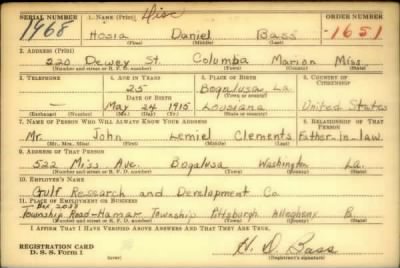 SERIAL NUMBER 1. NAME (Print) ORDER NUMBER
1968 Hosia Daniel Bass 1651
(First) (Middle) (Last)
2. ADDRESS (Print)
220 Dewey St. Columba Marion Miss.
(Number and street or R. F. D. number) (Town) (County) (State)
3. TELEPHONE 4. AGE IN YEARS 5. PLACE OF BIRTH 6. COUNTRY OF CITIZENSHIP
25 Bogalusa, La.
DATE OF BIRTH (Town or county)
May 24 1915 Louisiana United States
(Exchange) (Number) (Mo.) (Day) (Yr.) (State or country)
7. NAME OF PERSON WHO WILL ALWAYS KNOW YOUR ADDRESS 8. RELATIONSHIP OF THAT PERSON
Mr. John Lemiel Clements Father-in-law.
(Mr., Mrs., Miss) (First) (Middle) (Last)
9. ADDRESS OF THAT PERSON
522 Miss Ave. Bogalusa Washington La.
(Number and street or R. F. D. number) (Town) (County) (State)
10. EMPLOYER'S NAME
Gulf Research and Development Co
11. PLACE OF EMPLOYMENT OR BUSINESS
Box 2038
Township Road-Hamar Township Pittsburgh Allegheny
(Number and street or R. F. D. number) (Town) (County) (State)
I AFFIRM THAT I HAVE VERIFIED ABOVE ANSWERS AND THAT THEY ARE TRUE.
REGISTRATION CARD
D. S. S. Form 1
H. D. Bass
(Registrant's signature)